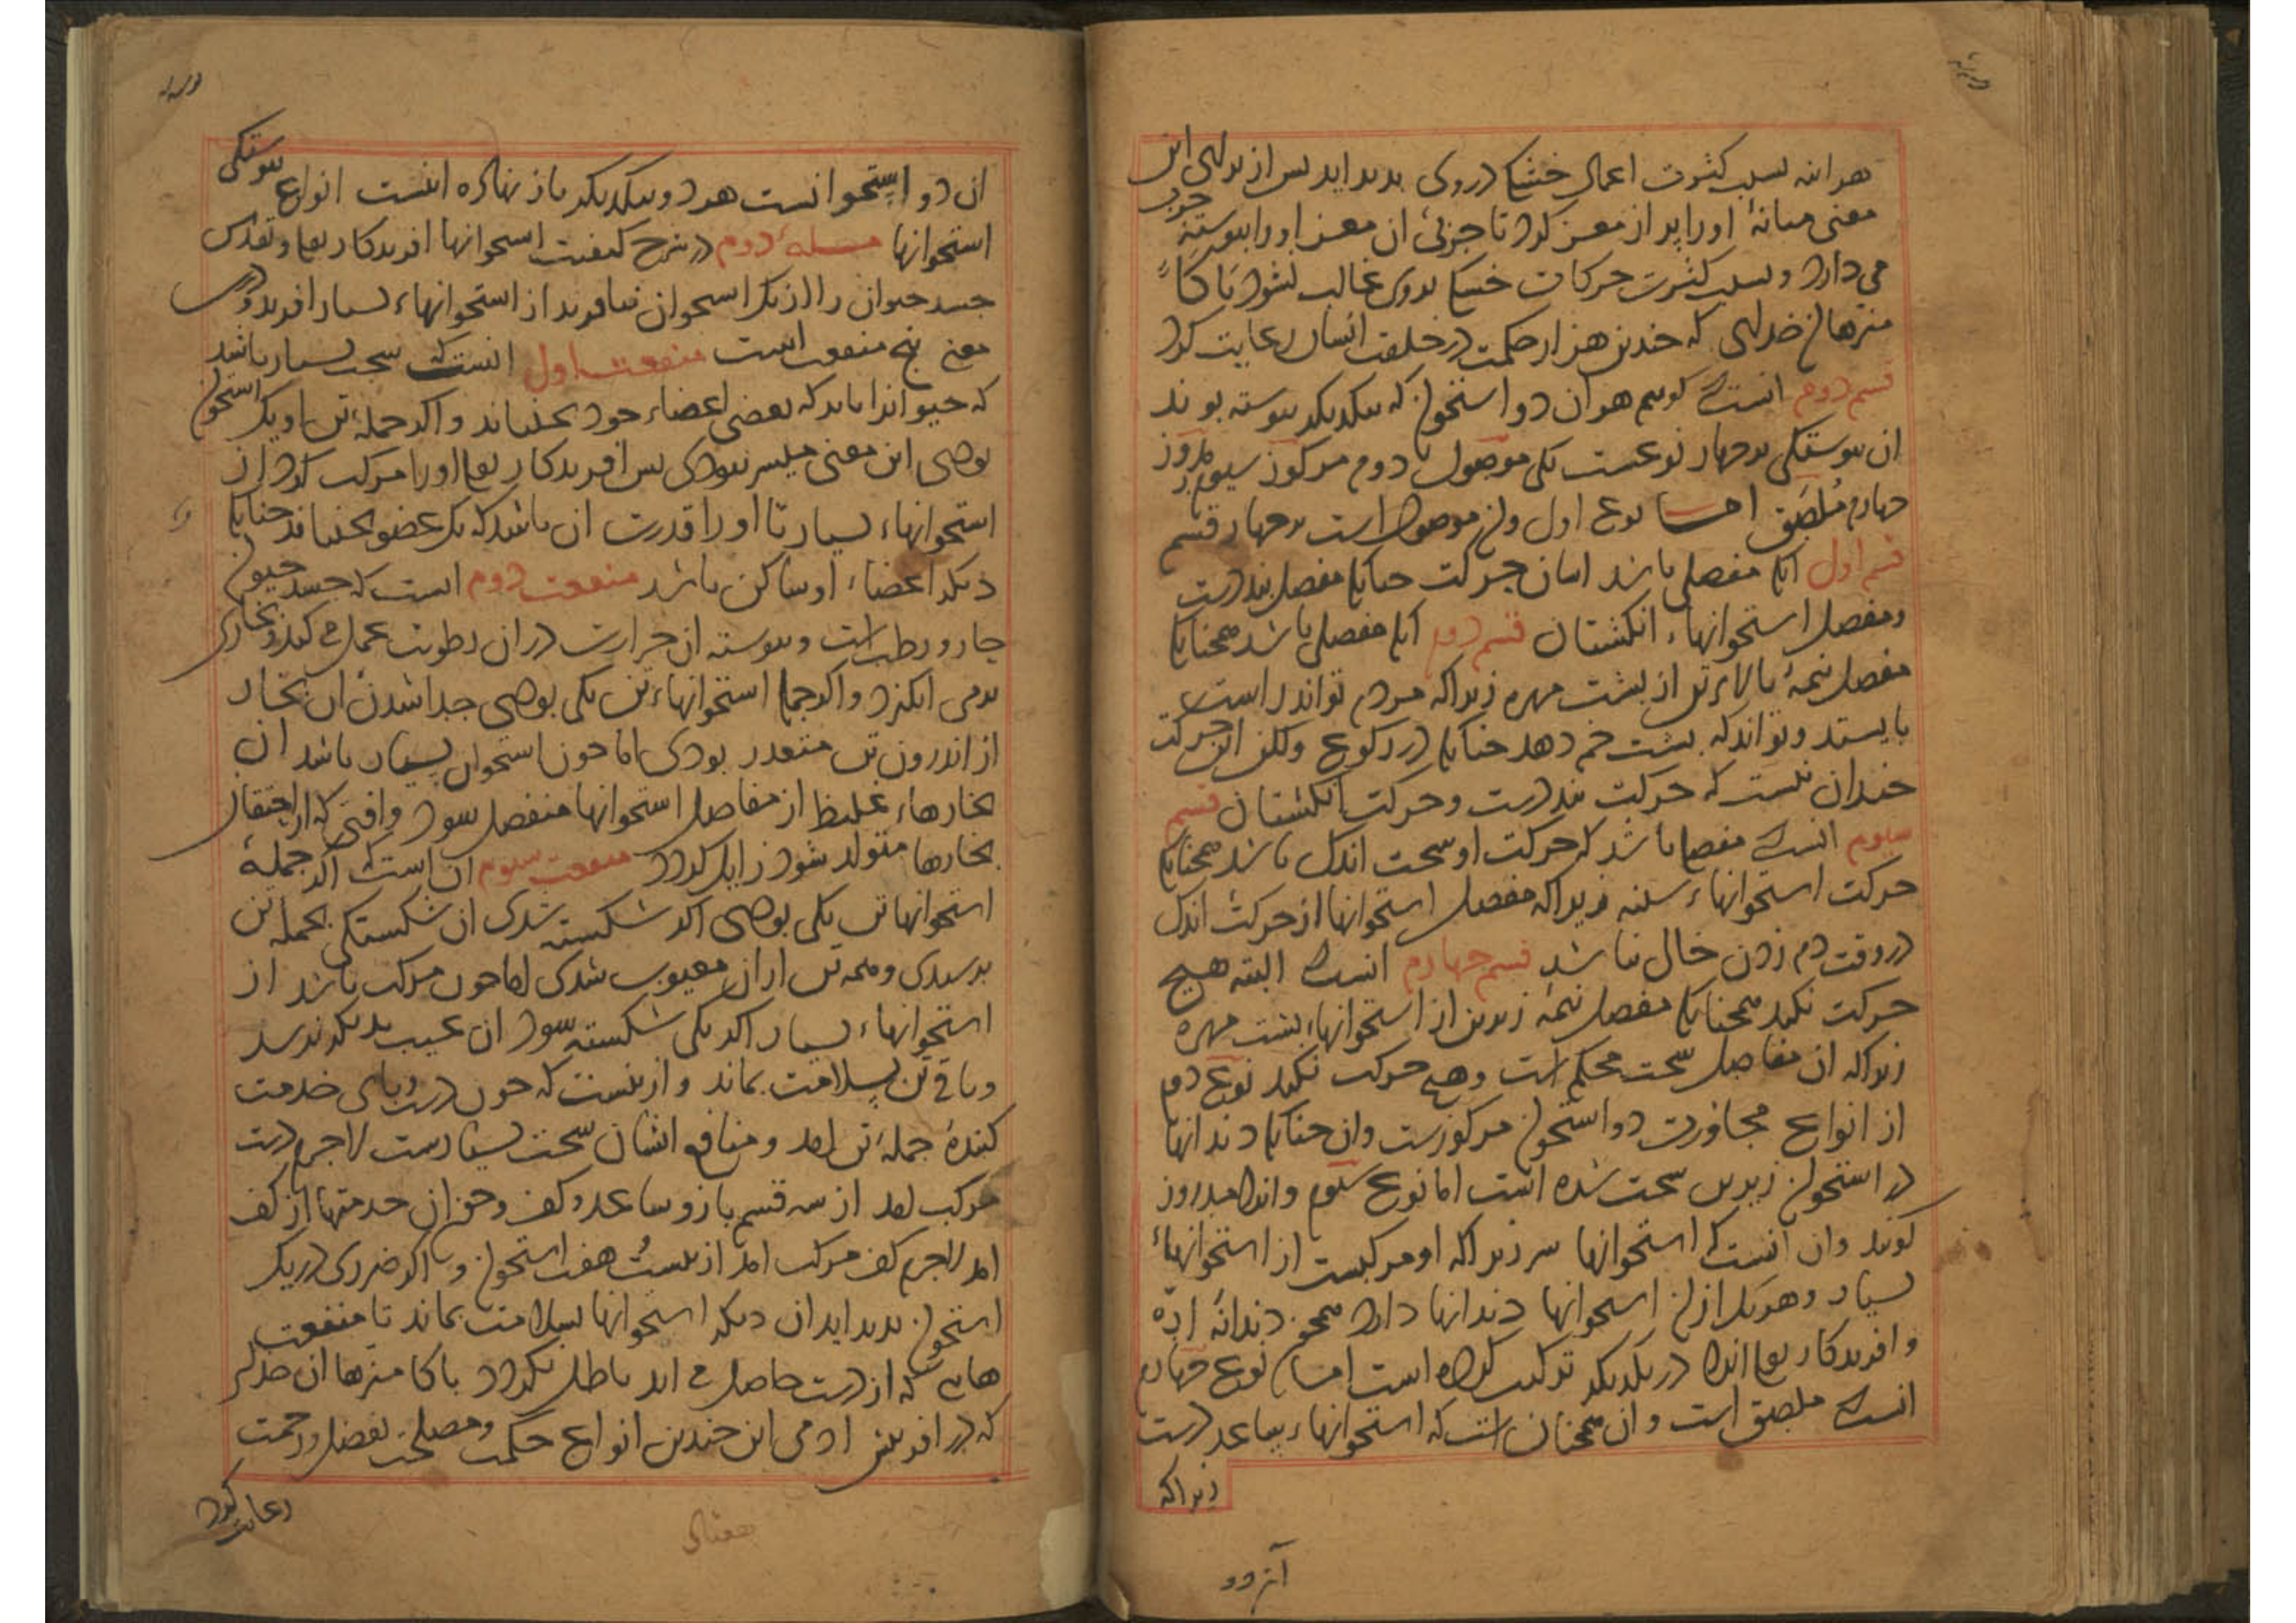 هر اینه بسبب کثرت اعمال خشکی در وی بدید اید پس از برای این
معنی میانهٔ او را پر از مغز کرد تا چربی ان مغز او را پیوسته چرب
می دارد و بسبب کثرت حرکات خشکی بروی غالب نشود پاکا
منزها ان خدایی که چندین هزار حکمت در خلقت انسان رعایت کرد
قسم دوم انست که گویم هر ان دو استخوان که بیکدیکر پیوسته بوند
ان پیوستگی بر چهار نوعست یکی موصول دوم مرکوز سیوم مدروز
چهارم ملصق اما نوع اول و ان موصول است بر چهار قسم
قسم اول انکه مفصلی باشد اسان حرکت چنانکه مفصل بند دست
و مفصل استخوانهاء انکشتان قسم دوم انکه مفصلی باشد همچنانکه
مفصل نیمهٔ بالاء تن از پشت مهره زیراکه مردم تواند راست
بایستد و تواند که پشت خم دهد چنانکه در رکوع ولکن این حرکت
چندان نیست که حرکت بند دست و حرکت انکشتان قسم
سیوم انست که مفصلی باشد که حرکت او سخت اندک باشد همچنانکه
حرکت استخوانهاء سینه زیراکه مفصل استخوانها از حرکت اندک
در وقت دم زدن خالی نباشد قسم چهارم انست که البته هیچ
حرکت نکند همچنانکه مفصل نیمهٔ زیرین از استخوانهاء پشت مهره
زیراکه ان مفاصل سخت محکم است و هیچ حرکت نکند نوع دوم
از انواع مجاورت دو استخوان مرکوزست و ان چنانکه دندانها
در استخوان زیرین سخت شده است اما نوع سیوم و انرا مدروز
کویند و ان انست که استخوانها سر زیراکه او مرکبست از استخوانهاء
بسیار و هر یک ازان استخوانها دندانها دارد همچون دندانهٔ اره
و افریدکار تعالی انرا در یکدیکر ترکیب کرده است اما نوع چهارم
انست که ملصق است و ان همچنان است که استخوانهاء ساعد دست
زیراکه
ان دو استخوانست هر دو بیکدیکر باز نهاده اینست انواع پیوستگی
استخوانها مسلهٔ دوم در شرح کیفیت استخوانها افریدکار تعالی و تقدس
جسد حیوان را از یک استخوان نیافرید از استخوانهاء بسیار افرید و درین
معنی پنج منفعت است منفعت اول انست که سخت بسیار باشد
که حیوانرا باید که بعضی اعضاء خود بجنباند و اکر جملهٔ تن او یک استخوان
بودی این معنی میسر نبودی پس افریدکار تعالی او را مرکب کرد از
استخوانهاء بسیار تا او را قدرت ان باشد که یک عضو بجنباند چنانکه
دیکر اعضاء او ساکن باشد منفعت دوم انست که جسد حیوان
حار و رطب است و پیوسته ان حرارت در ان رطوبت عمل می کند و بخاری
برمی انکیزد و اکر جملهٔ استخوانهاء تن یکی بودی جدا شدن ان بخار
از اندرون تن متعذر بودی اما چون استخوان بسیار باشد ان
بخارهاء غلیظ از مفاصل استخوانها منفصل شود و افتی که از احتقان
بخارها متولد شود زایل کردد منفعت سیوم ان است که اکر جملهٔ
استخوانها تن یکی بودی اکر شکسته شدی ان شکستگی بجمله تن
برسیدی و همه تن ازان معیوب شدی اما چون مرکب باشد از
استخوانهاء بسیار اکر یکی شکسته شود ان عیب بدیکر نرسد
و باقی تن بسلامت بماند و از ینست که چون دست و پای خدمت
کنندهٔ جملهٔ تن امد و منافع ایشان سخت بسیارست لاجرم دست
مرکب امد از سه قسم بازو و ساعد و کف و چون ان خدمتها از کف
امد لاجرم کف مرکب امد از بیست هفت استخوان و اکر ضرری در یک
استخوان بدید اید ان دیکر استخوانها بسلامت بماند تا منفعت
هایی که از دست حاصل می اید باطل نکردد پاکا منزها ان خدای
که در افرینش ادمی این چندین انواع حکمت و مصلحت بفضل و رحمت
رعایت کرد